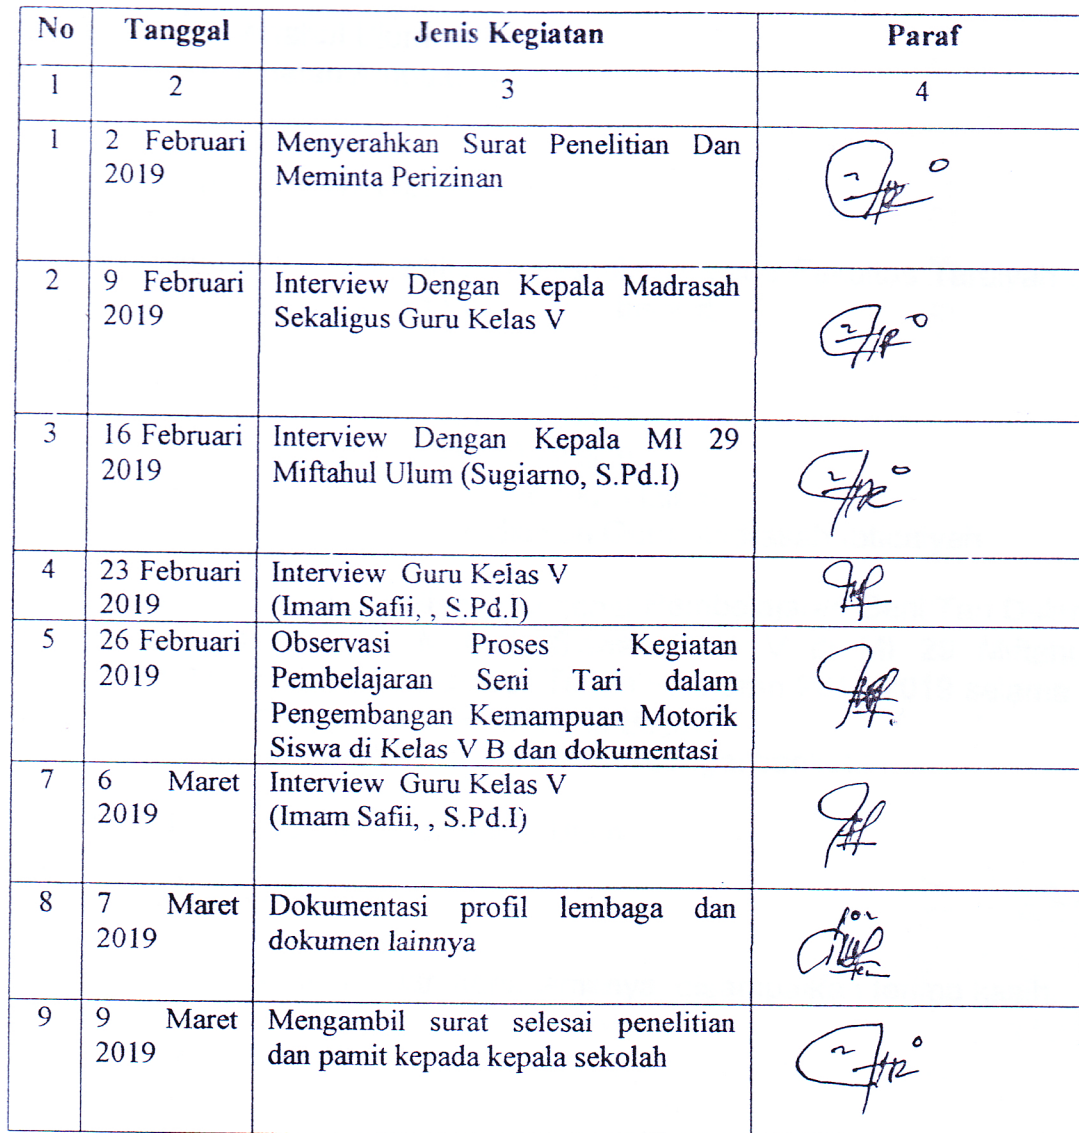 No Tanggal Jenis Kegiatan Paraf
1 2 3 4
1 2 Februari Menyerahkan Surat Penelitian Dan
2019 Meminta Perizinan
2 9 Februari Interview Dengan Kepala Madrasah
2019 Sekaligus Guru Kelas V
3 16 Februari Interview Dengan Kepala MI 29
2019 Miftahul Ulum (Sugiarno, S.Pd.I)
4 23 Februari Interview Guru Kelas V
2019 (Imam Safii, , S.Pd.I)
5 26 Februari Observasi Proses Kegiatan
2019 Pembelajaran Seni Tari dalam
Pengembangan Kemampuan Motorik
Siswa di Kelas V B dan dokumentasi
7 6 Maret Interview Guru Kelas V
2019 (Imam Safii, , S.Pd.I)
8 7 Maret Dokumentasi profil lembaga dan
2019 dokumen lainnya
9 9 Maret Mengambil surat selesai penelitian
2019 dan pamit kepada kepala sekolah